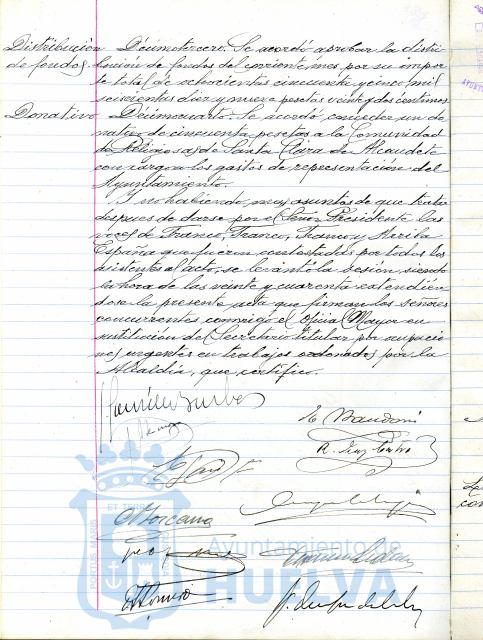 Distribución
de fondos.
Décimotercero. Se acordó aprobar la distri-
bución de fondos del corriente mes, por su impor-
te total de ochocientas cincuenta y cinco mil
seiscientas diez y nueve pesetas veinte y dos céntimos
Donativo
Décimocuarto. Se acordó conceder un do-
nativo de cincuenta pesetas a la Comunidad
de Religiosas de Santa Clara de Alcaudete
con cargo a los gastos de representación del
Ayuntamiento.
Y no habiendo mas asuntos de que tratar
despues de darse por el Señor Presidente las
voces de Franco, Franco, Franco y Arriba
España que fueron contestadas por todos los
asistentes al acto, se levantó la sesion, siendo
la hora de las veinte y cuarenta extendién-
dose la presente acta que firman los señores
concurrentes conmigo el Oficial Mayor en
sustitución del Secretario titular por ocupacio-
nes urgentes en trabajos ordenados por la
Alcaldía, que certifico.
PORTUS MARIS ET TERRAE
Ayuntamiento de
HUELVA